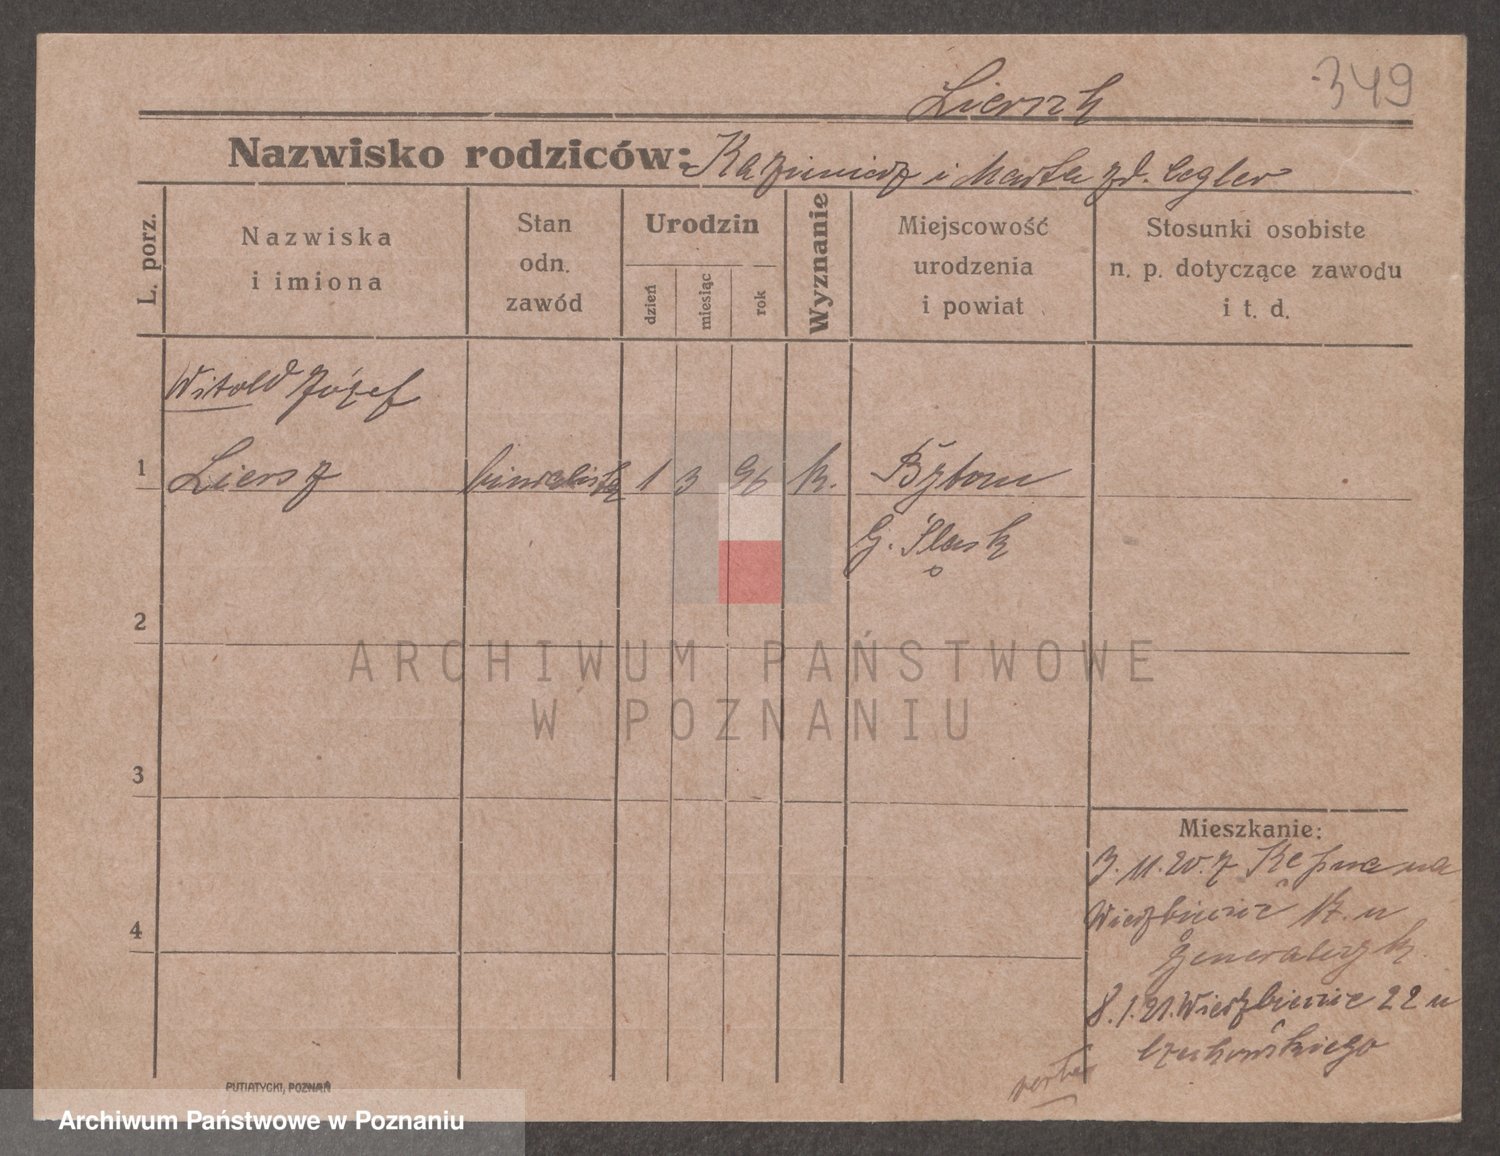 349
Liersch
Nazwisko rodziców: Kazimierz i Marta zd. Cegler
L. porz.
Nazwiska
i imiona
Stan
odn.
zawód
Urodzin
dzień
miesiąc
rok
Wyznanie
Miejscowość
urodzenia
i powiat
Stosunki osobiste
n. p. dotyczące zawodu
i t. d.
Witold Józef
1 Liersz biuralistka 1 3 96 k. Bytom
G. Śląsk
2
3
4
Mieszkanie:
3.11.20. z Kępna na
Wierzbięcic 17. u
Generalczyk
8.1.21. Wierzbięcic 22 u
Czuhowskiego
PUTIATYCKI, POZNAŃ
ARCHIWUM PAŃSTWOWE
W POZNANIU
Archiwum Państwowe w Poznaniu